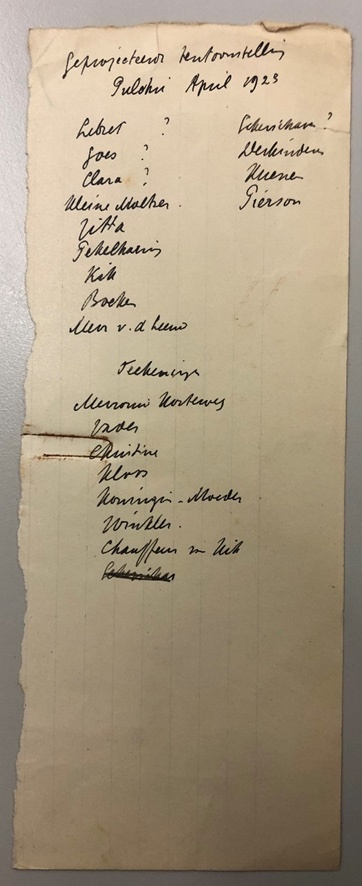 Geprojecteerde tentoonstelling
Pulchri April 1923
Lebret ?
Goes ?
Clara ?
Kleine Moltzer.
Jitta
Tekelharing
Kik
Boeken
Mevr v. d Leeuw
Scherichan?
Derkinderen
Kuenen
Pierson
Teekeningen
Mevrouw Korteweg
Vader
Christine
Kloos
Koningin-Moeder
Winkler.
Chauffeur v Kik